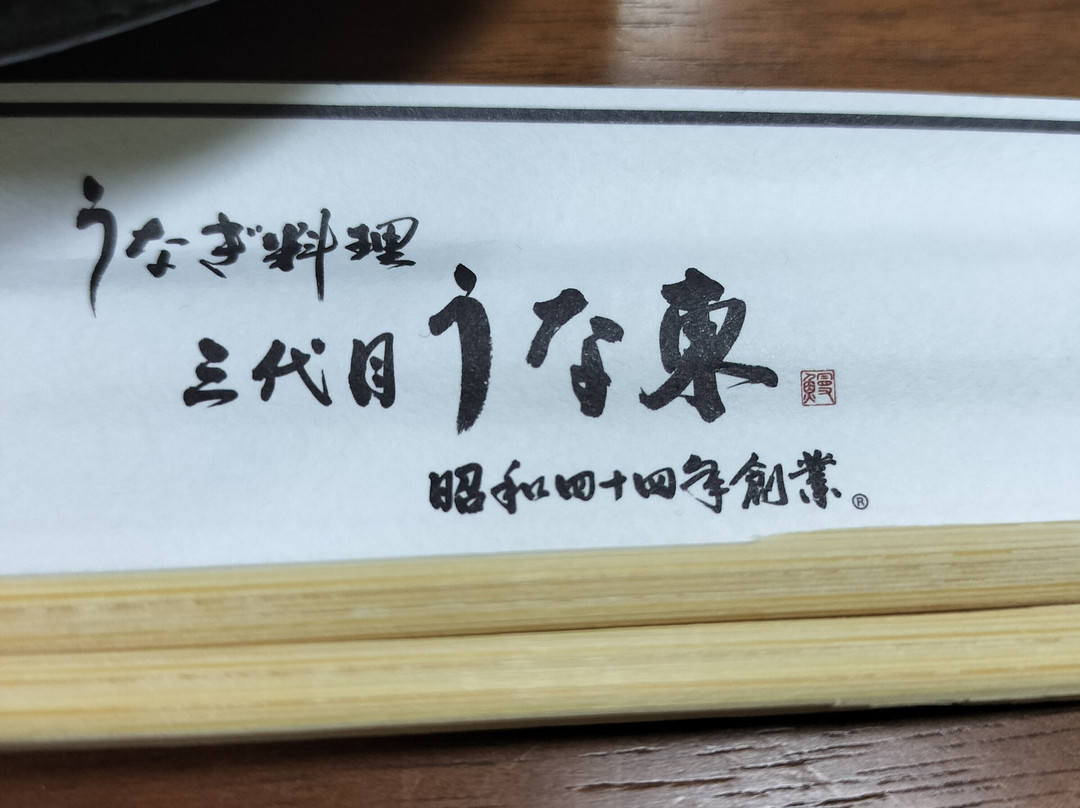 うなぎ料理
三代目うな東
鰻
昭和四十四年創業®